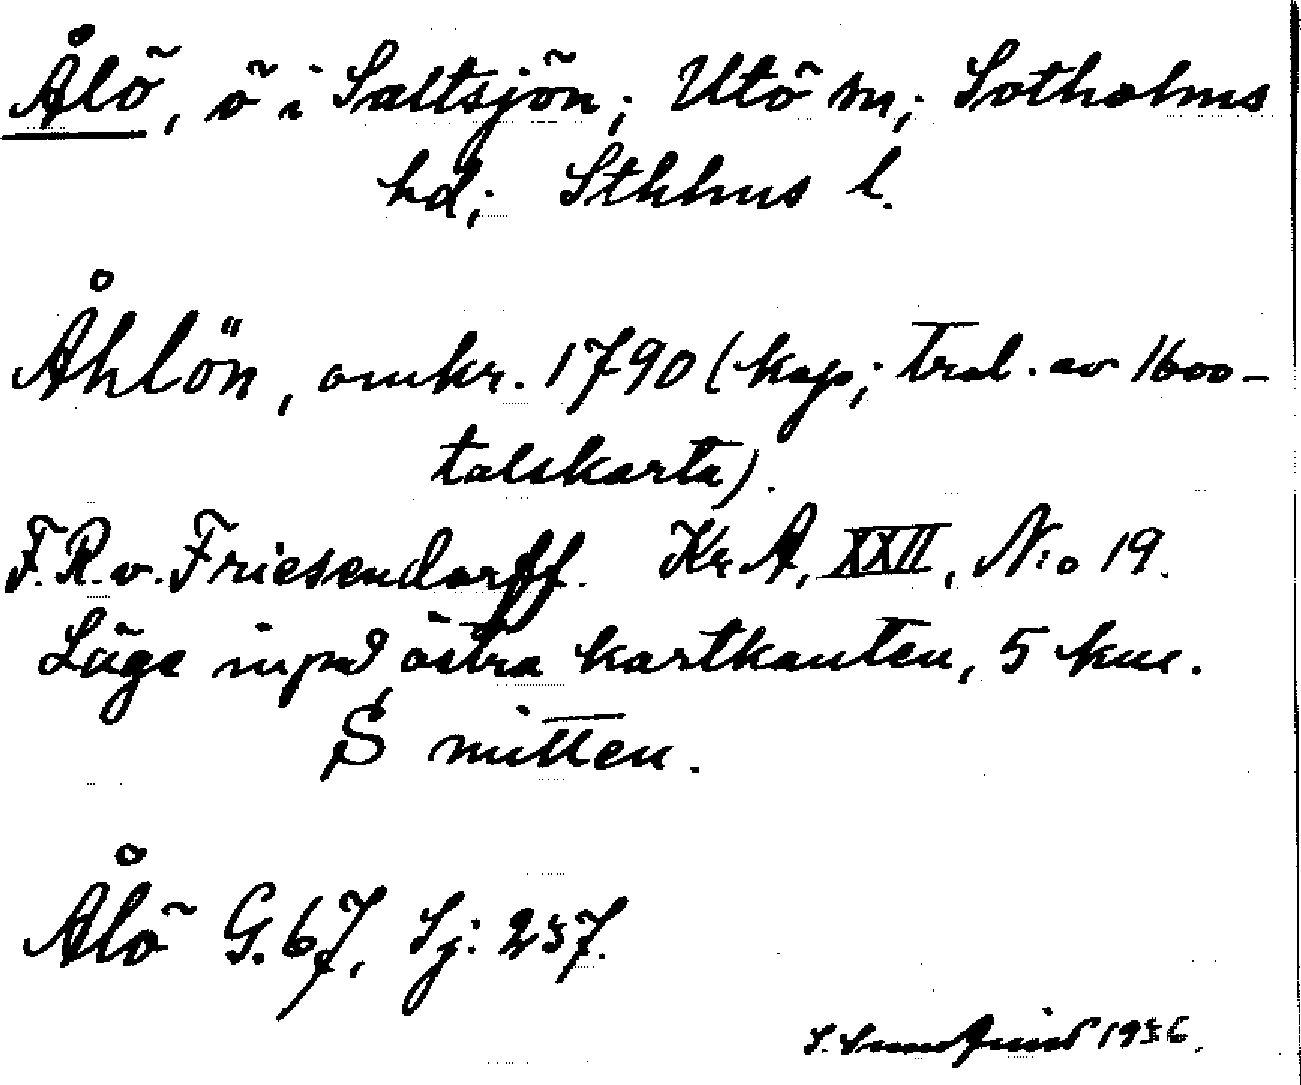 Ålö, ö i Saltsjön; Utö sn; Sotholms
hd; Sthlms l.
Åhlön, omkr. 1790 (kop; trol. av 1600-
talskarta).
F.R.v. Friesendorff. Kr. A, XXII, N:o 19.
Läge inpå östra kartkanten, 5 km.
S mitten.
Ålö G. 67, Sj: 257.
1936.